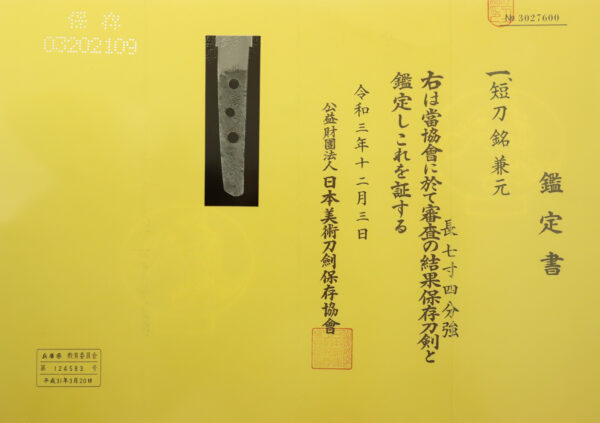 № 3027600
鑑定書
一、短刀 銘 兼元
長七寸四分強
右は當協會に於て審査の結果保存刀剣と
鑑定しこれを証する
令和三年十二月三日
公益財團法人 日本美術刀劍保存協會
保存
03202109
兵庫県 教育委員会
第 124583 号
平成31年3月20日